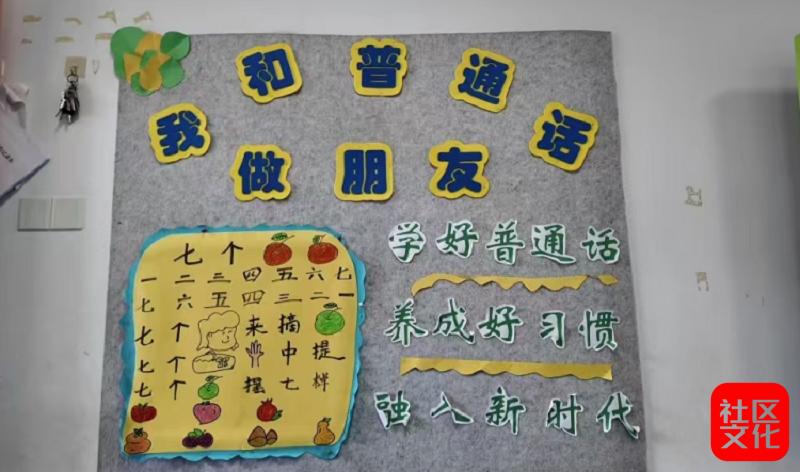 我和普通话
做朋友
学好普通话
养成好习惯
融入新时代
七个
一二三四五六七
七六五四三二一
七个来摘
七个中提
七个摆七样
社区
文化